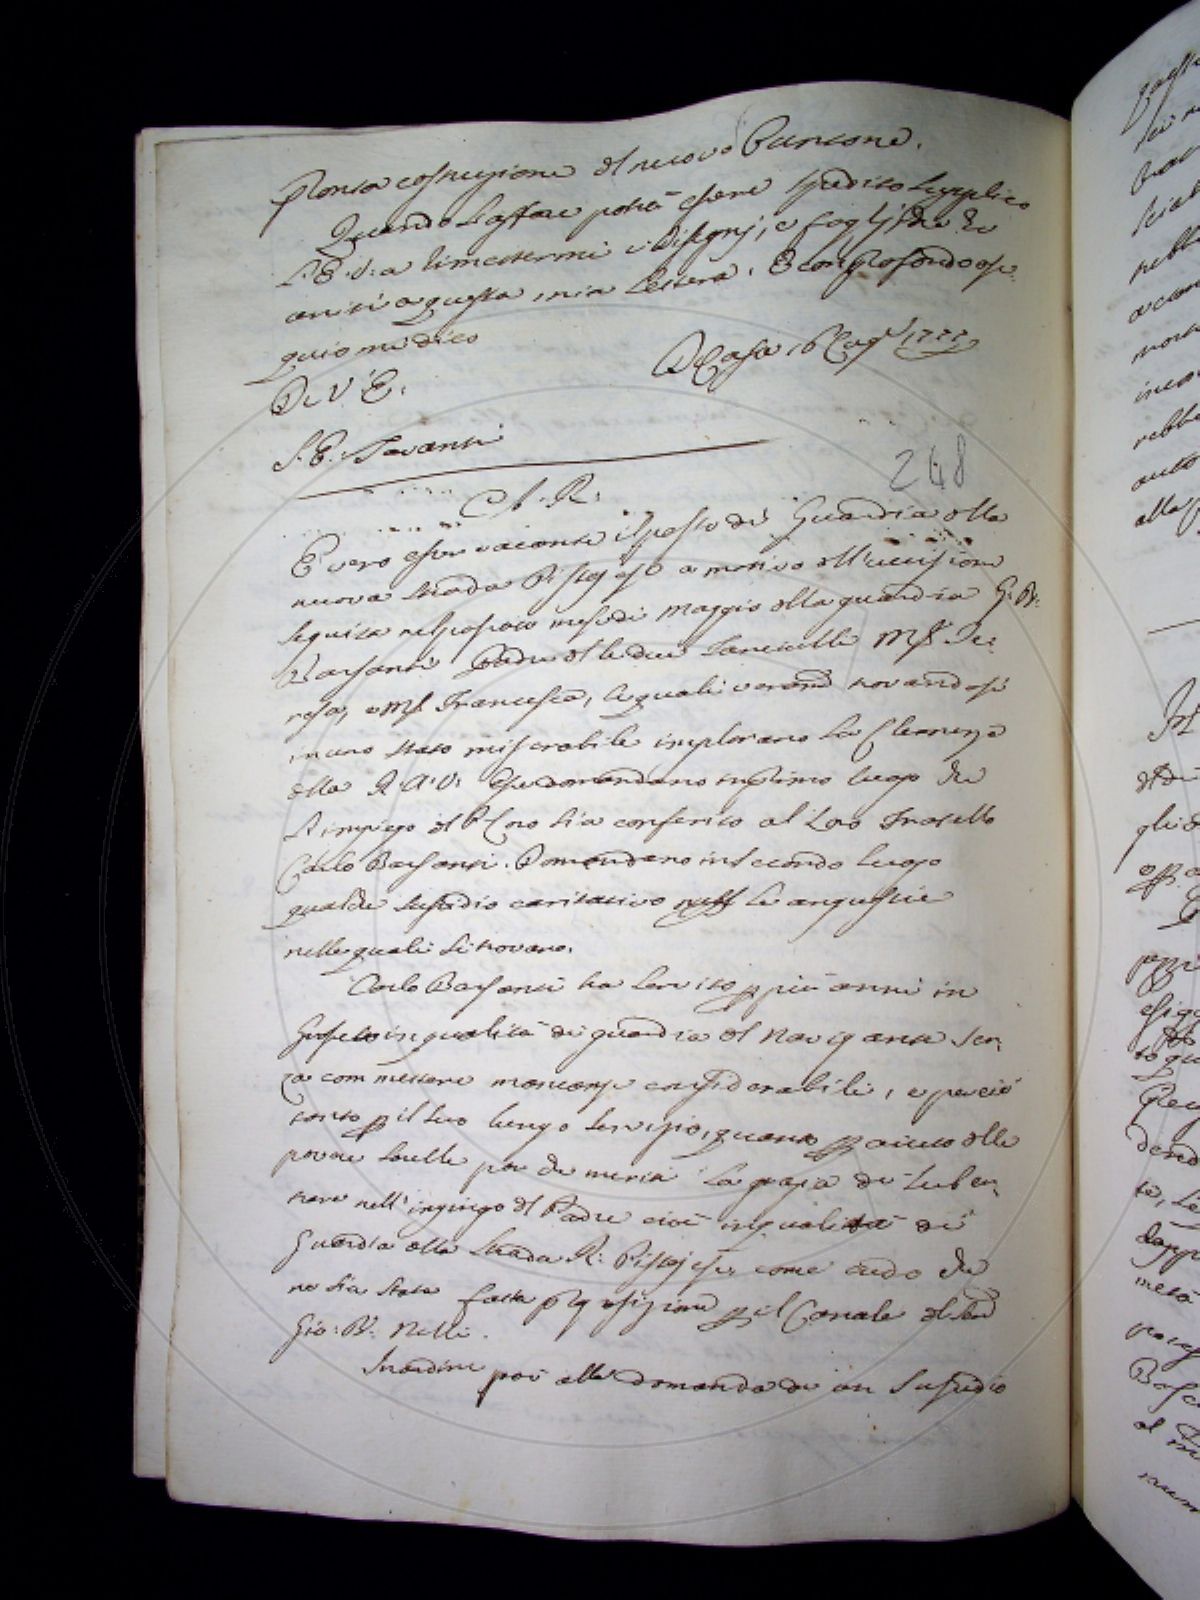 pronta costruzione del nuovo Pancone.
Quando l'affare potrà essere spedito supplico
l'E. V. a rimettermi i disegni, e fogli, che ho
uniti a questa mia lettera. E con profondo osse-
quio mi dico
Di V. E.
Di Casa 16 Lug. 1777
S. E. Tavanti
248
A. R.
E vero esser vacante il posto di Guardia della
nuova strada Pistojese a motivo dell'uccisione
seguita nel prossimo mese di Maggio della guardia G. B.
Barsanti Padre delle due sorelle M.ª Te-
resa, e M.ª Francesca, le quali trovandosi
in uno stato miserabile implorano la Clemenza
della R. A. V. Esse domandano in primo luogo che
l'impiego del Pre sia conferito al loro Fratello
Carlo Barsanti. Domandano in secondo luogo
qualche sussidio caritativo le angustie
nelle quali si trovano.
Carlo Barsanti ha servito p più anni in
in qualità di guardia del Navigante sen-
za commettere mancanze considerabili, e perciò
tanto p il suo lungo servizio, quanto p aiuto delle
povere sorelle par che meriti la grazia di suben-
trare nell'impiego del Padre cioè in qualità di
Guardia della strada R. Pistojese, come credo che
ne sia stata fatta p il Canale del
Gio. B. Nelli.
In ordine poi alla domanda di un sussidio